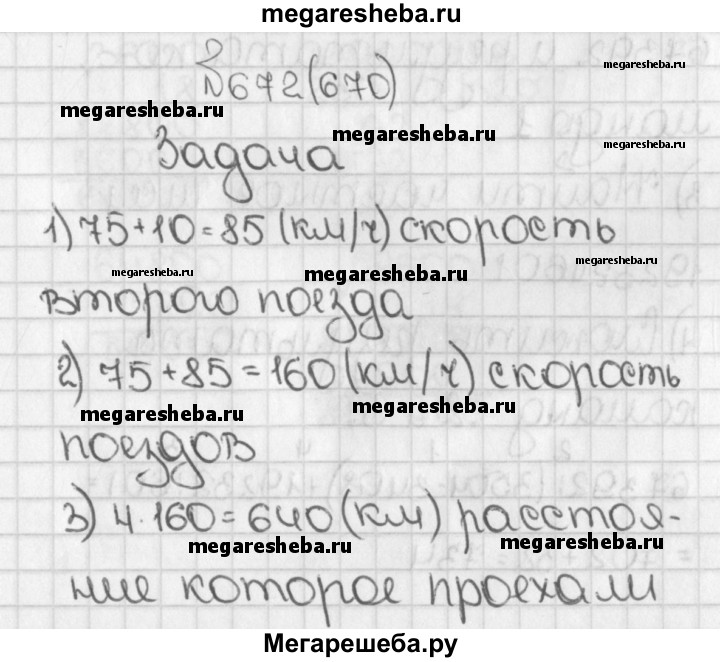 megaresheba.ru
№672(670)
megaresheba.ru
megaresheba.ru
megaresheba.ru
Задача
1) 75+10=85 (км/ч) скорость
megaresheba.ru
megaresheba.ru
megaresheba.ru
второго поезда
2) 75+85=160(км/ч) скорость
megaresheba.ru
megaresheba.ru
поездов
3) 4·160=640(км) расстоя-
megaresheba.ru
megaresheba.ru
ние которое проехали
Мегарешеба.ру